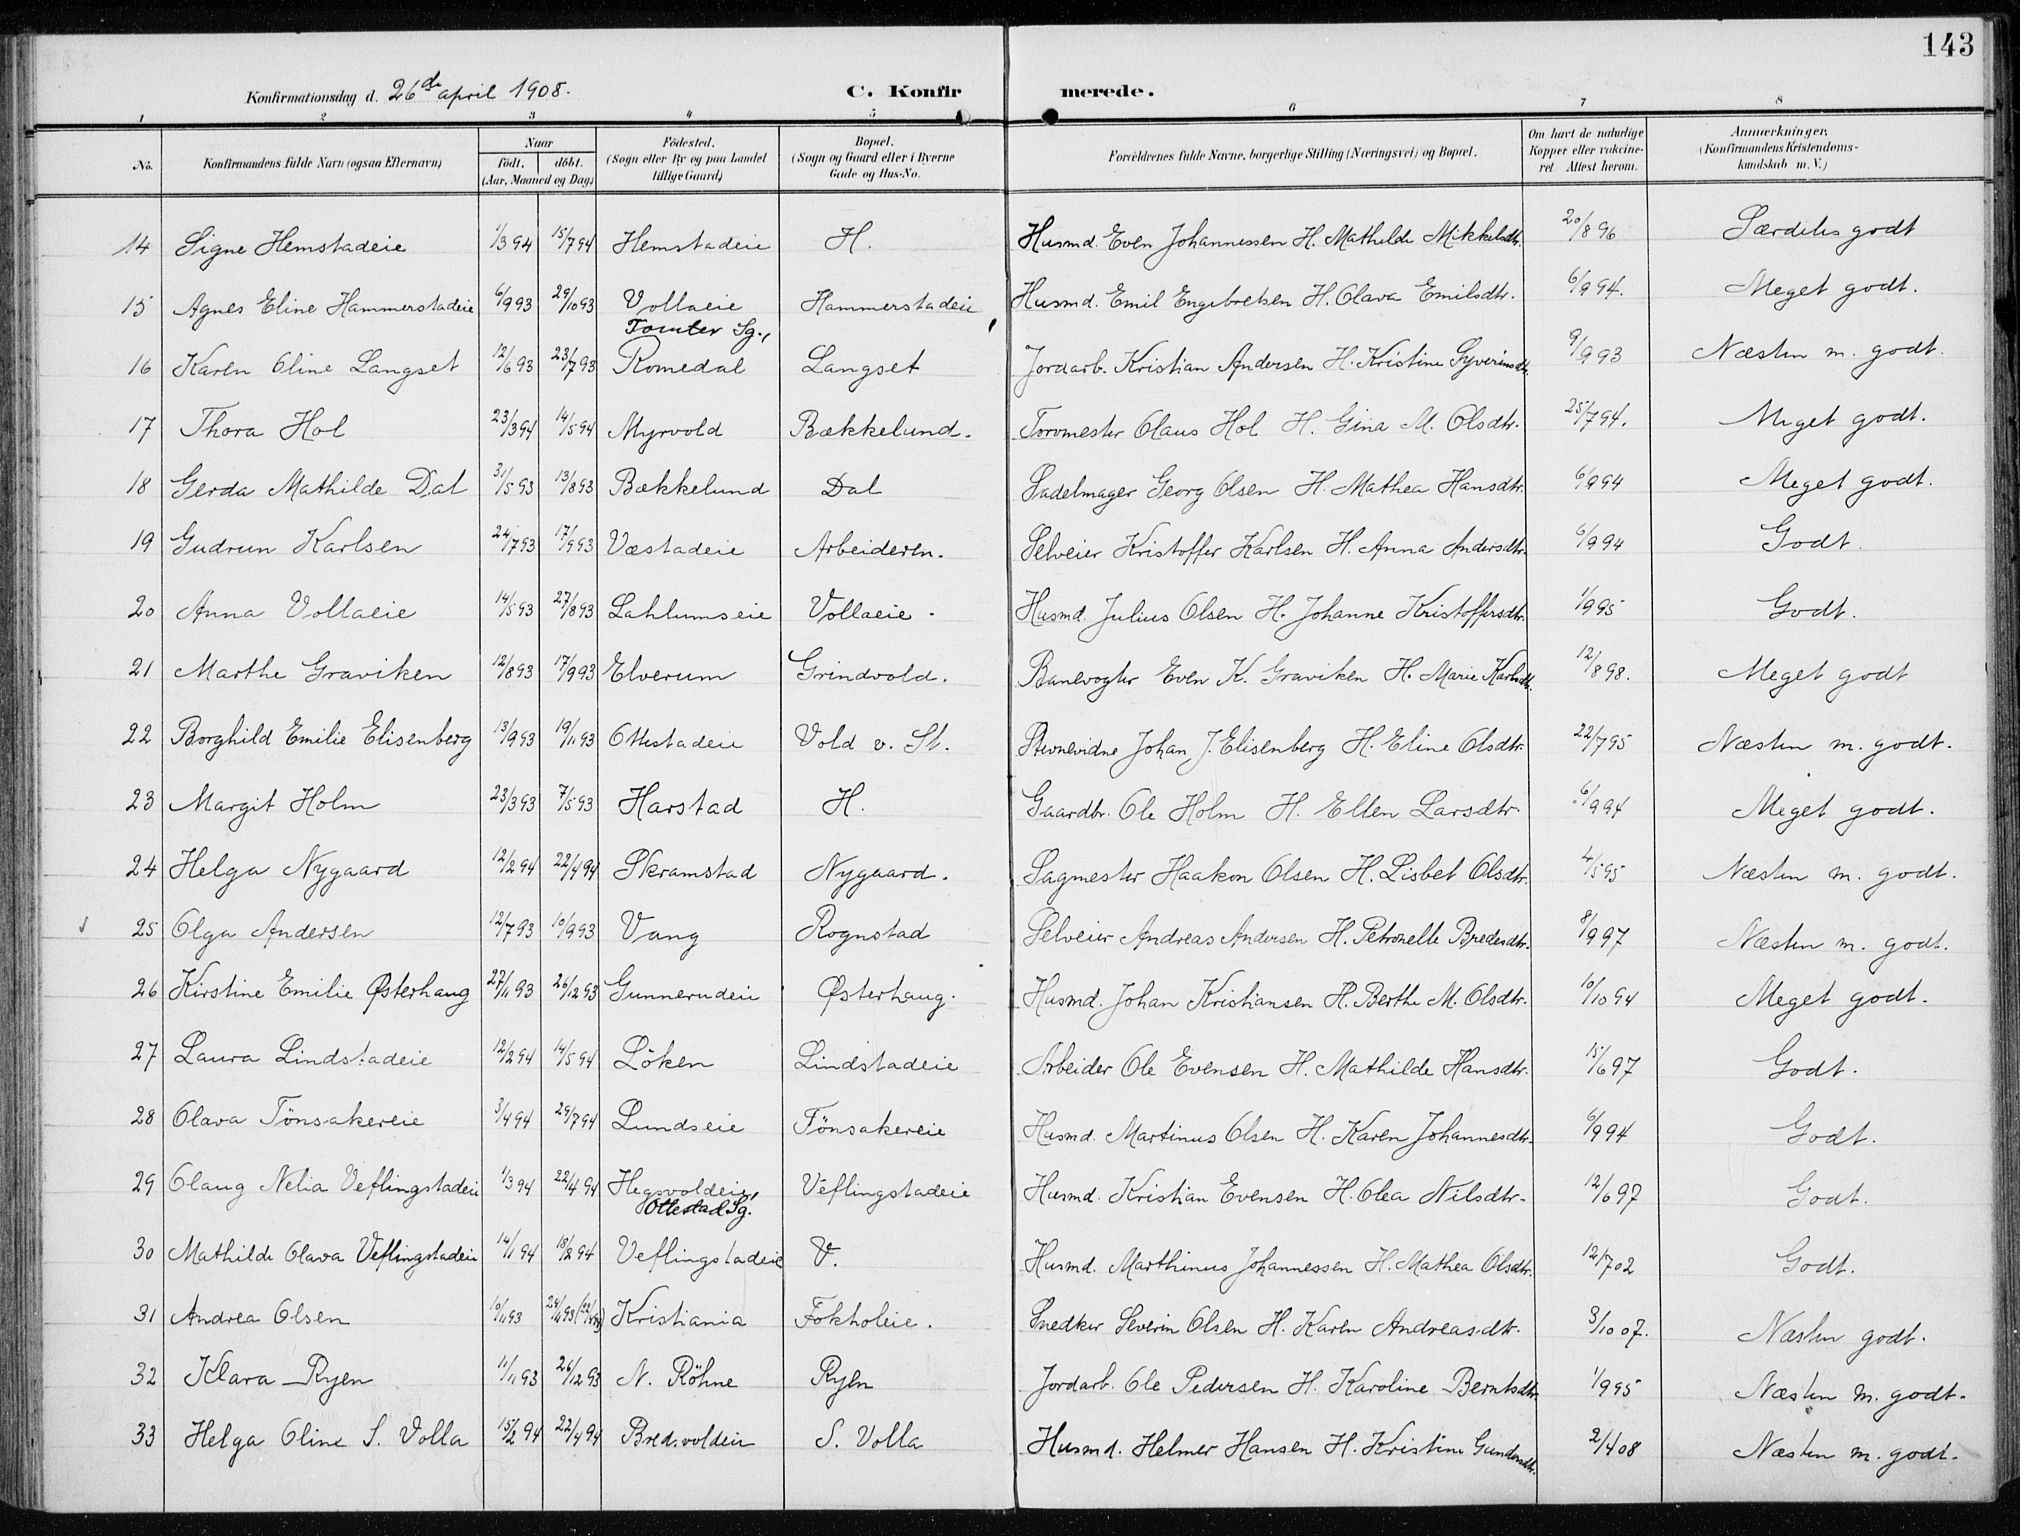 143
Konfirmationsdag d. 26de april 1908.
C. Konfirmerede.
1 2 3 4 5 6 7 8
No. Konfirmandens fulde Navn (ogsaa Efternavn) Naar født. døbt. (Aar, Maaned og Dag) Fødested. (Sogn eller By og paa Landet tillige Gaard) Bopæl. (Sogn og Gaard eller i Byerne Gade og Hus-No. Forældrenes fulde Navne, borgerlige Stilling (Næringsvei) og Bopæl. Om havt de naturlige Kopper eller vakcineret. Attest herom. Anmærkninger. (Konfirmandens Kristendomskundskab m. V.)
14 Signe Hemstadeie 1/3 94 15/7 94 Hemstadeie H. Husmd. Even Johannessen H. Mathilde Mikkelsdtr. 20/8 96 Særdeles godt
15 Agnes Eline Hammerstadeie 6/9 93 29/10 93 Vollaeie Hammerstadeie Husmd. Emil Engebretsen H. Olava Emilsdtr. 6/9 94. Meget godt.
16 Karen Oline Langset 12/6 93 23/7 93 Tomter Sg., Romedal Langset Jordarb. Kristian Andersen H. Kristine Syverinsdtr. 9/9 93 Næsten m. godt.
17 Thora Hol 23/3 94 14/5 94 Myrvold Bækkelund. Torvmester Olaus Hol H. Gina M. Olsdtr. 25/7 94. Meget godt.
18 Gerda Mathilde Dal 31/5 93 13/8 93 Bækkelund Dal Sadelmager Georg Olsen H. Mathea Hansdtr. 6/9 94 Meget godt.
19 Gudrun Karlsen 24/7 93 17/9 93 Væstadeie Arbeideren. Selveier Kristoffer Karlsen H. Anna Andersdtr. 6/9 94 Godt.
20 Anna Vollaeie 14/5 93 27/8 93 Lahlumseie Vollaeie. Husmd. Julius Olsen H. Johanne Kristoffersdtr. 1/9 95 Godt.
21 Marthe Graviken 12/8 93 17/9 93 Elverum Grindvold. Banevogter Even K. Graviken H. Marie Karlsdtr. 12/8 98. Meget godt
22 Borghild Emilie Elisenberg 13/9 93 19/11 93 Ottestadeie Vold v. St. Stevnevidne Johan J. Elisenberg H. Eline Olsdtr. 22/7 95 Næsten m. godt.
23 Margit Holm 23/3 93 7/5 93 Harstad H. Gaardbr. Ole Holm H. Ellen Larsdtr. 6/9 94 Meget godt.
24 Helga Nygaard 12/2 94 22/4 94 Skramstad Nygaard. Sagmester Haakon Olsen H. Lisbet Olsdtr. 4/5 95 Næsten m. godt.
25 Olga Andersen 12/7 93 10/9 93 Vang Rognstad Selveier Andreas Andersen H. Petronelle Bredesdtr. 8/9 97 Næsten m. godt.
26 Kirstine Emilie Østerhaug 27/11 93 26/12 93 Gunnerudeie Østerhaug. Husmd. Johan Kristiansen H. Berthe M. Olsdtr. 10/10 94 Meget godt.
27 Laura Lindstadeie 12/2 94 14/5 94 Löken Lindstadeie Arbeider Ole Evensen H. Mathilde Hansdtr. 15/6 97 Godt.
28 Olava Tönsakereie 3/4 94 29/7 94 Lundseie Tönsakereie Husmd. Martinus Olsen H. Karen Johannesdtr. 6/9 94 Godt.
29 Olaug Nelia Veflingstadeie 1/3 94 22/4 94 Hegsvoldeie, Ottestad Sg. Veflingstadeie Husmd. Kristian Evensen H. Olea Nilsdtr. 12/6 97 Godt.
30 Mathilde Olava Veflingstadeie 14/1 94 18/2 94 Veflingstadeie V. Husmd. Marthinus Johannessen H. Mathea Olsdtr. 12/7 02 Godt.
31 Andrea Olsen 10/11 93 Kristiania Fokholeie. Snedker Severin Olsen H. Karen Andreasdtr. 3/10 07. Næsten godt.
32 Klara Ryen 11/11 93 26/12 93 N. Röhne Ryen Jordarb. Ole Pedersen H. Karoline Berntsdtr. 1/9 95 Næsten m. godt.
33 Helga Oline S. Volla 15/2 94 22/4 94 Bredsvoldeie S. Volla Husmd. Helmer Hansen H. Kristine Gundersdtr. 2/4 08 Næsten m. godt.